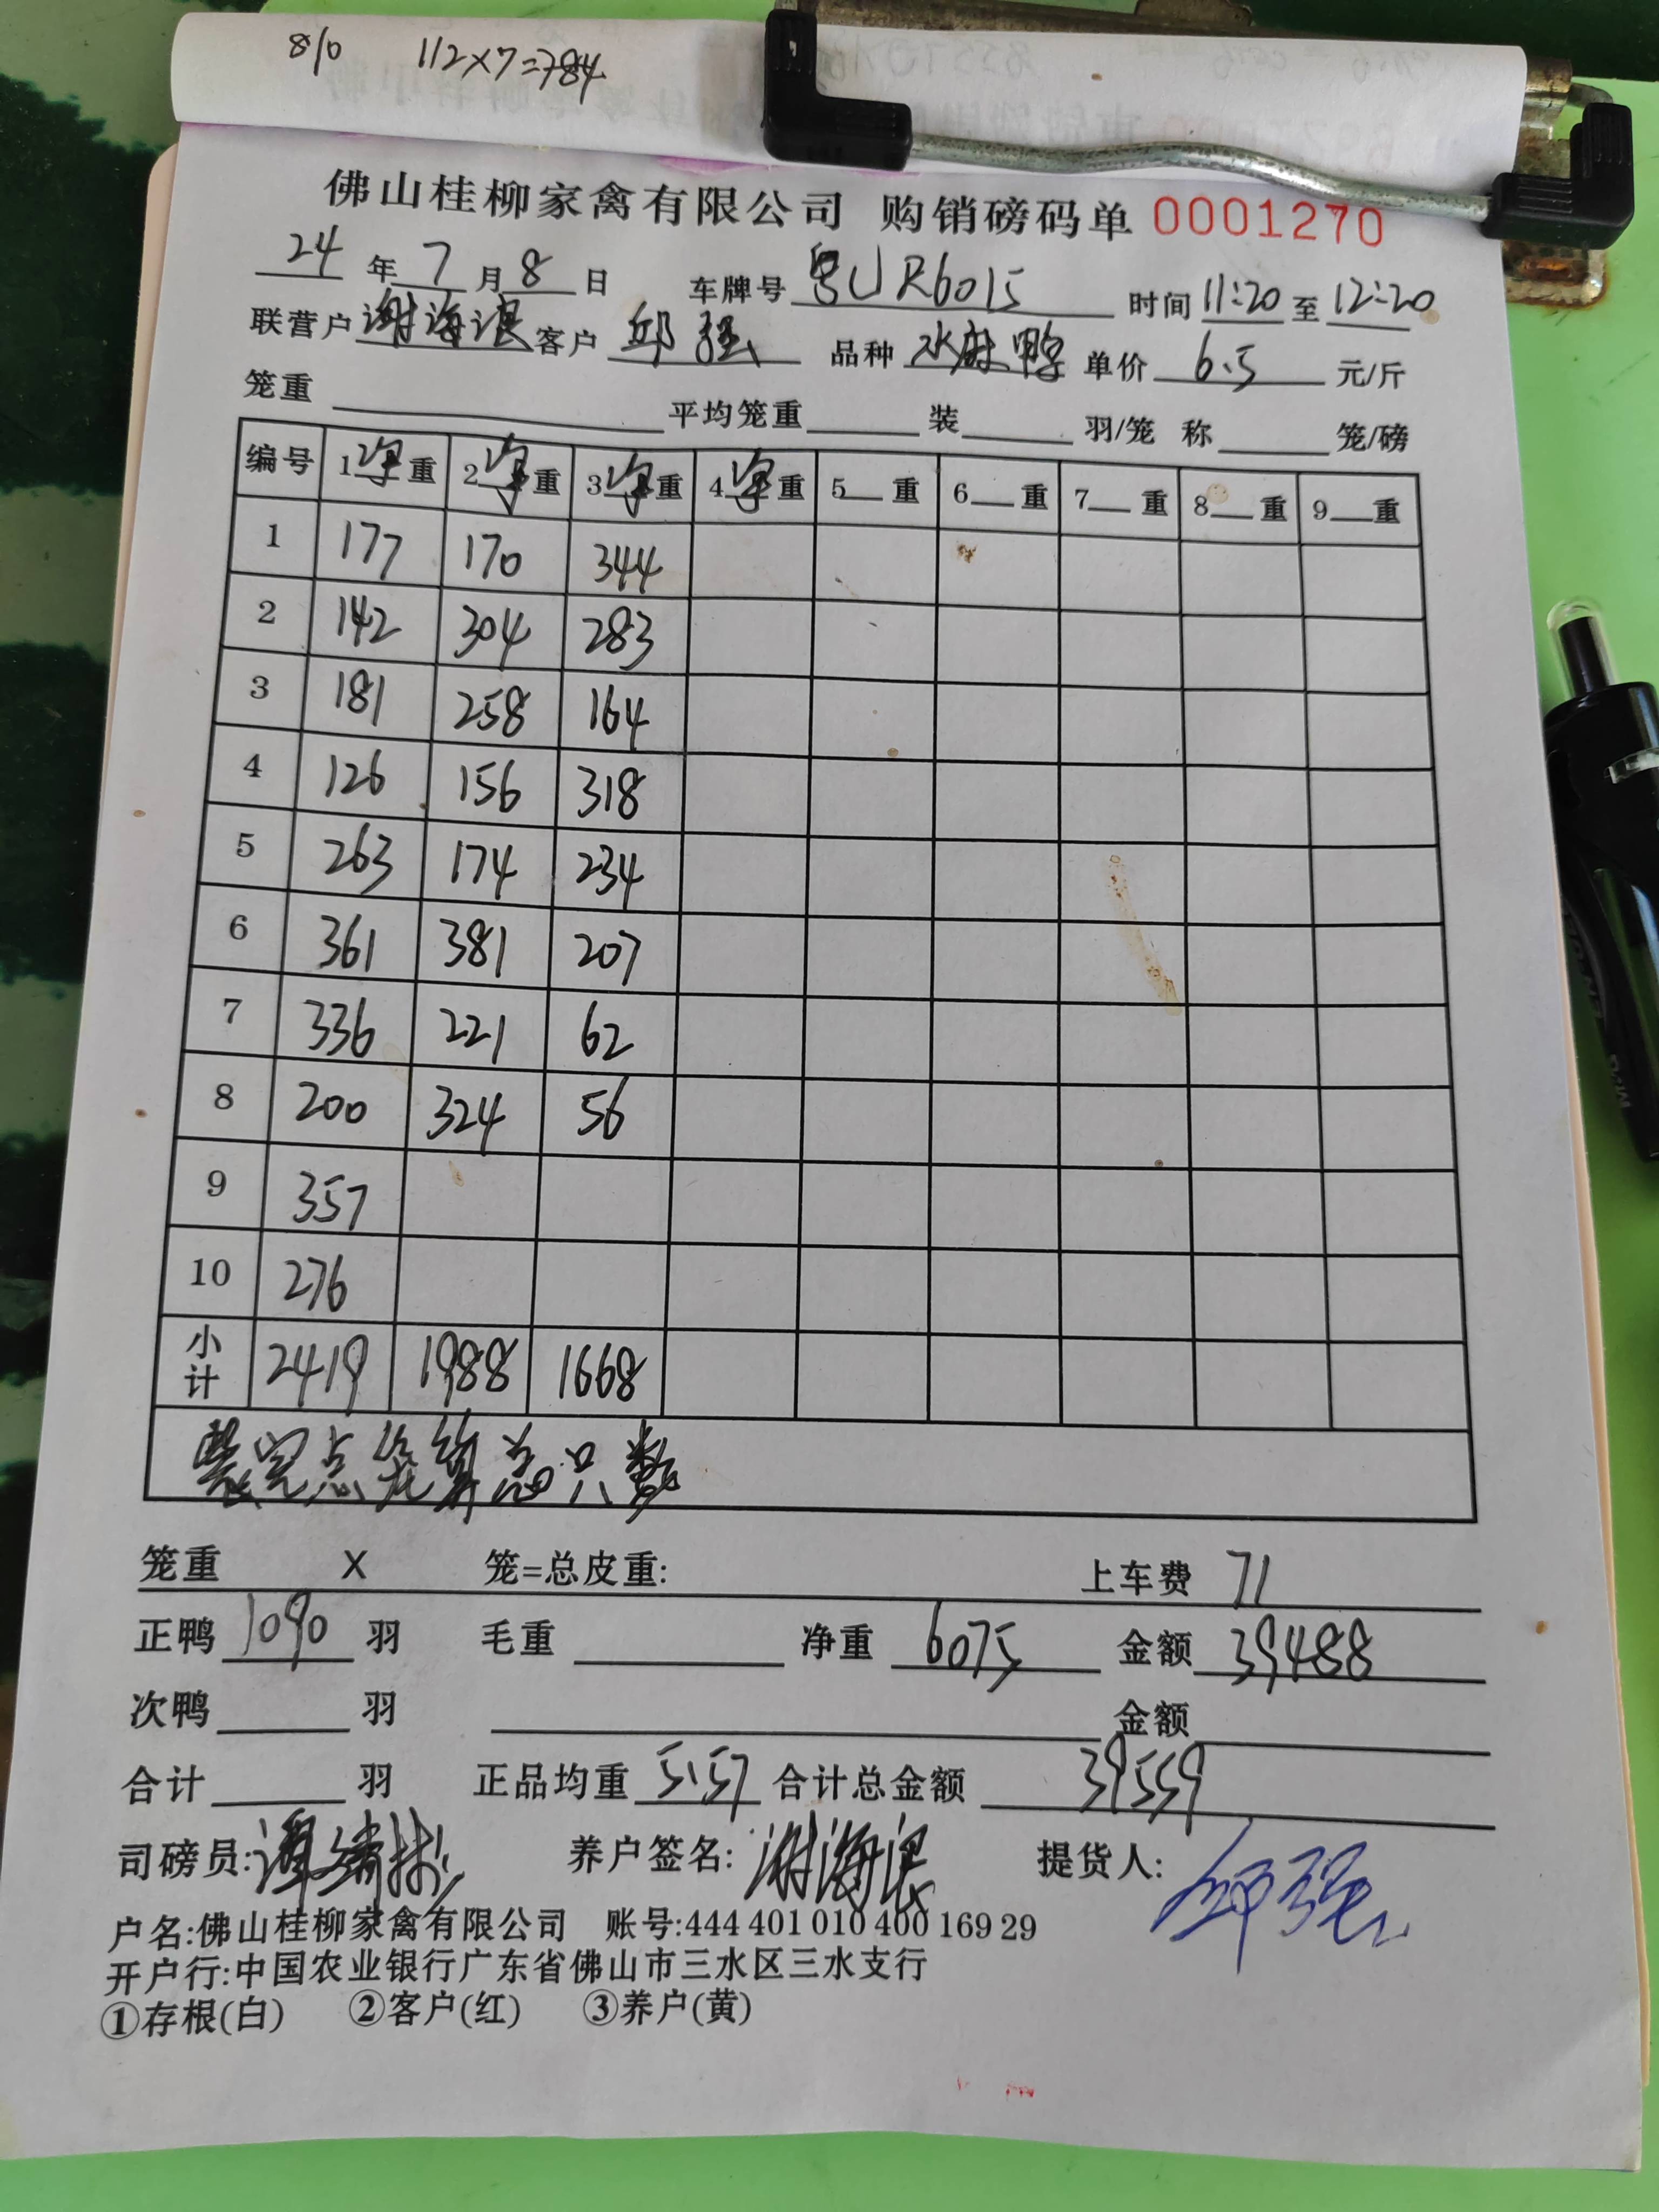 810 112×7=784
佛山桂柳家禽有限公司 购销磅码单 0001270
24 年 7 月 8 日 车牌号 粤UR6015 时间 11:20 至 12:20
联营户 谢海浪 客户 邱强 品种 水麻鸭 单价 6.5 元/斤
笼重 平均笼重 装 羽/笼 称 笼/磅
编号 1净重 2净重 3净重 4净重 5 重 6 重 7 重 8 重 9 重
1 177 170 344
2 142 304 283
3 181 258 164
4 126 156 318
5 263 174 234
6 361 381 207
7 336 221 62
8 200 324 56
9 357
10 276
小计 2419 1988 1668
装完点笼算总只数
笼重 X 笼=总皮重: 上车费 71
正鸭 1090 羽 毛重 净重 6075 金额 39488
次鸭 羽 金额
合计 羽 正品均重 5.57 合计总金额 39559
司磅员: 养户签名: 谢海浪 提货人: 邱强
户名:佛山桂柳家禽有限公司 账号:444 401 010 400 169 29
开户行:中国农业银行广东省佛山市三水区三水支行
①存根(白) ②客户(红) ③养户(黄)